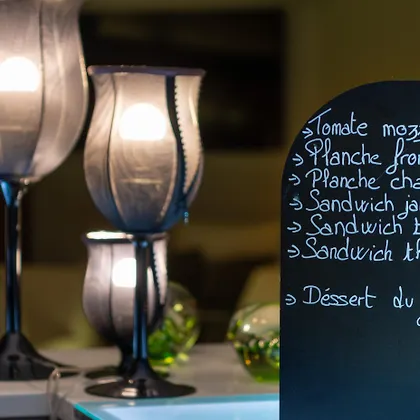 → Tomate mozz
→ Planche from
→ Planche cha
→ Sandwich ja
→ Sandwich t
→ Sandwich th
→ Déssert du